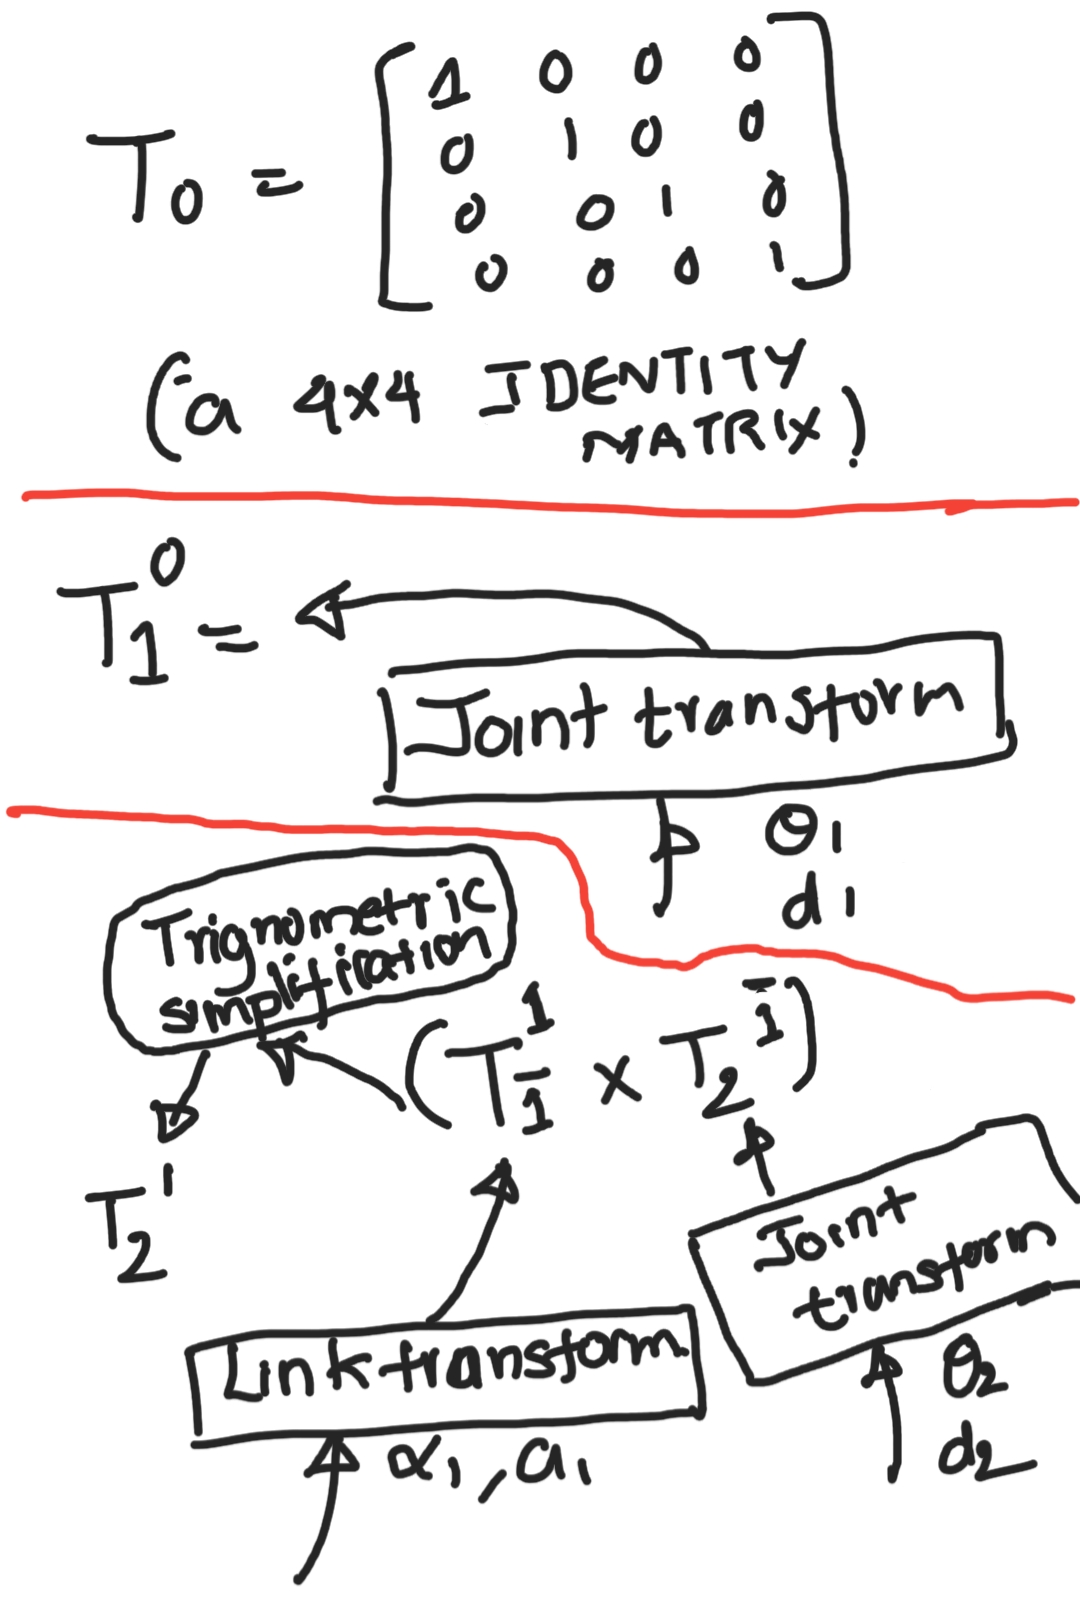 T₀ = [1 0 0 0
0 1 0 0
0 0 1 0
0 0 0 1]
(a 4x4 IDENTITY
MATRIX)
T₁⁰ =
Joint transform
θ₁
d₁
Trignometric
simplification
(T_1̄^1 x T_2^1̄)
T₂¹
Joint
transtorm
Link transtorm
θ₂
d₂
α₁, a₁